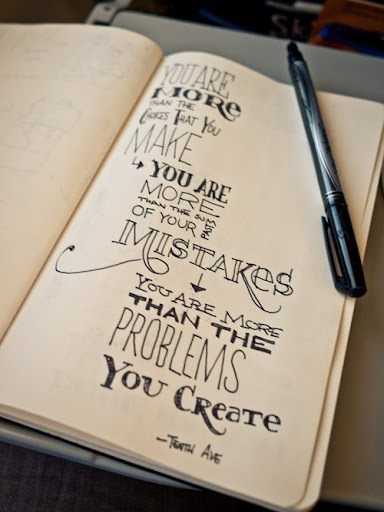 YOU ARE
MORE
THAN THE
CHOICES THAT YOU
MAKE
YOU ARE
MORE
THAN THE SUM
OF YOUR PAST
MISTAKES
YOU ARE MORE
THAN THE
PROBLEMS
YOU CREATE
—TENTH AVE